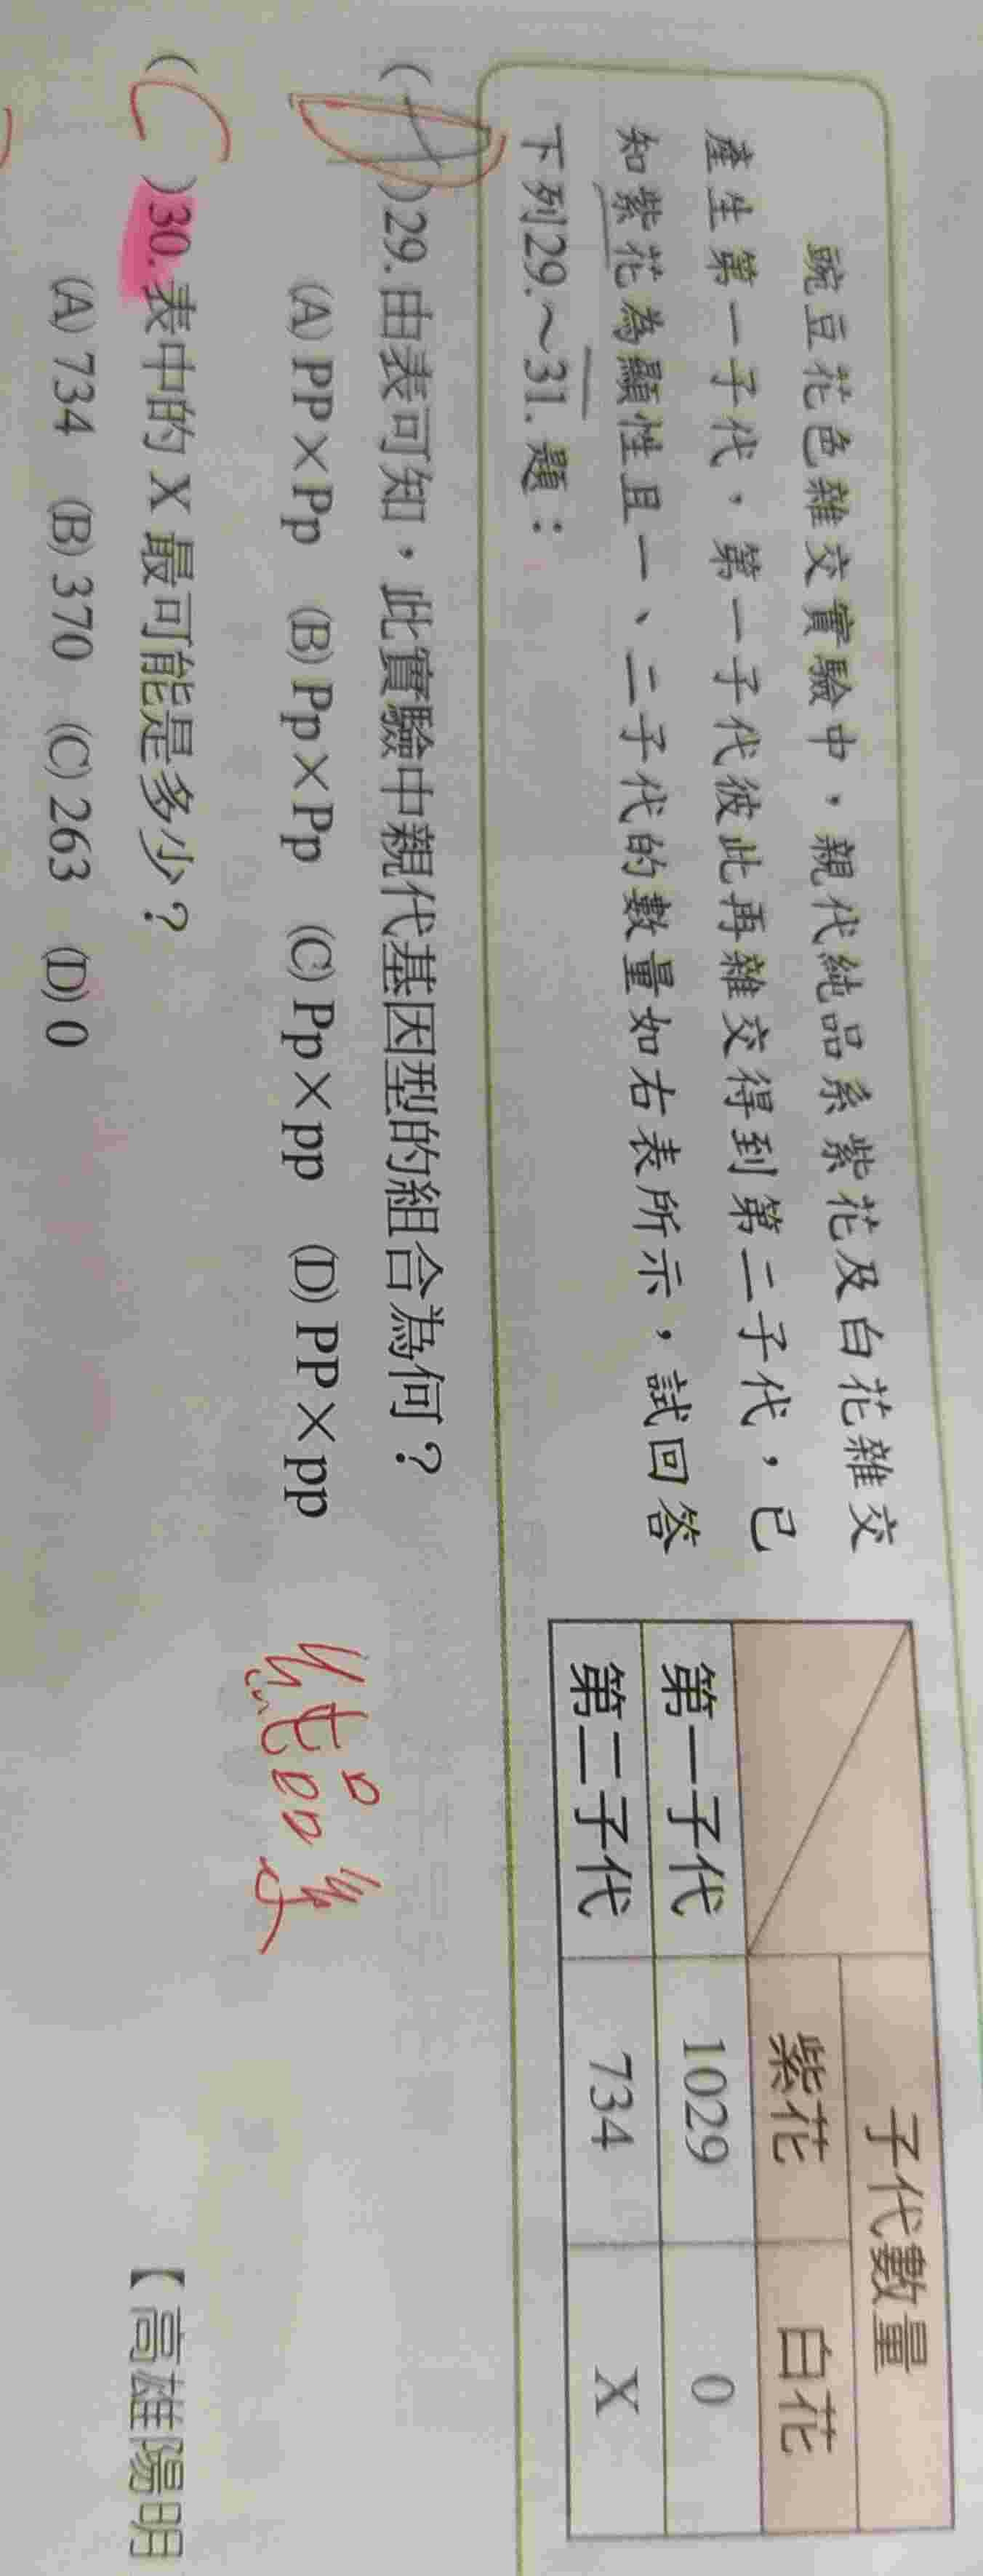 豌豆花色雜交實驗中，親代純品系紫花及白花雜交
產生第一子代，第一子代彼此再雜交得到第二子代，已
知紫花為顯性且一、二子代的數量如右表所示，試回答
下列29.～31.題：
子代數量
紫花 白花
第一子代 1029 0
第二子代 734 X
( )29.由表可知，此實驗中親代基因型的組合為何？
(A) PP×Pp (B) Pp×Pp (C) Pp×pp (D) PP×pp
純品系
(C)30.表中的 X 最可能是多少？
【高雄陽明
(A) 734 (B) 370 (C) 263 (D) 0